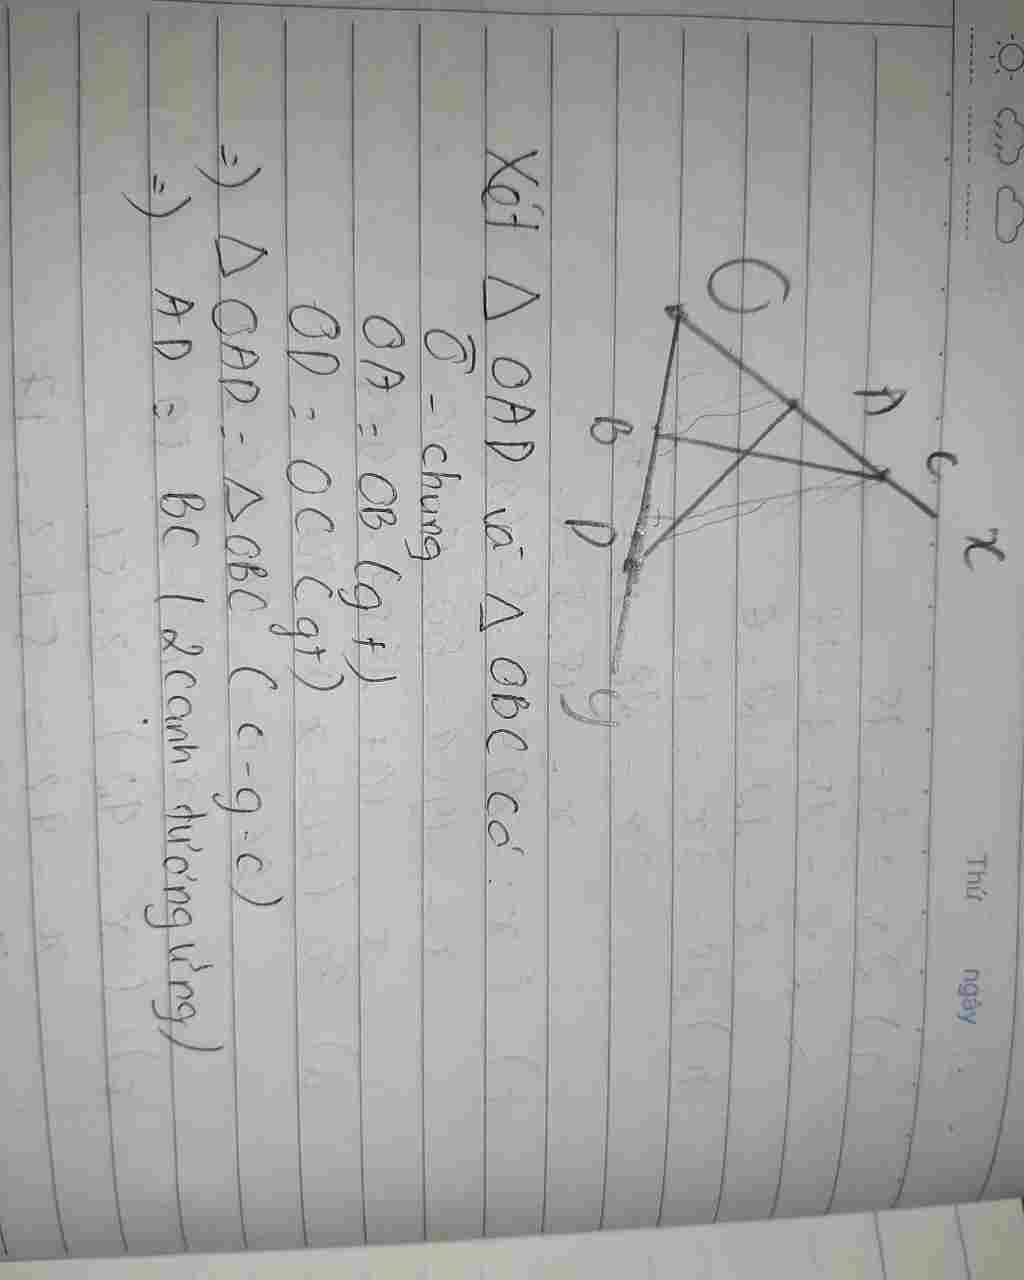 Thứ
ngày
x
C
A
O
B
D
y
Xét Δ OAD và Δ OBC có:
Ô - chung
OA = OB (gt)
OD = OC (gt)
=) Δ OAD = Δ OBC (c-g-c)
=) AD = BC (2 cạnh tương ứng)